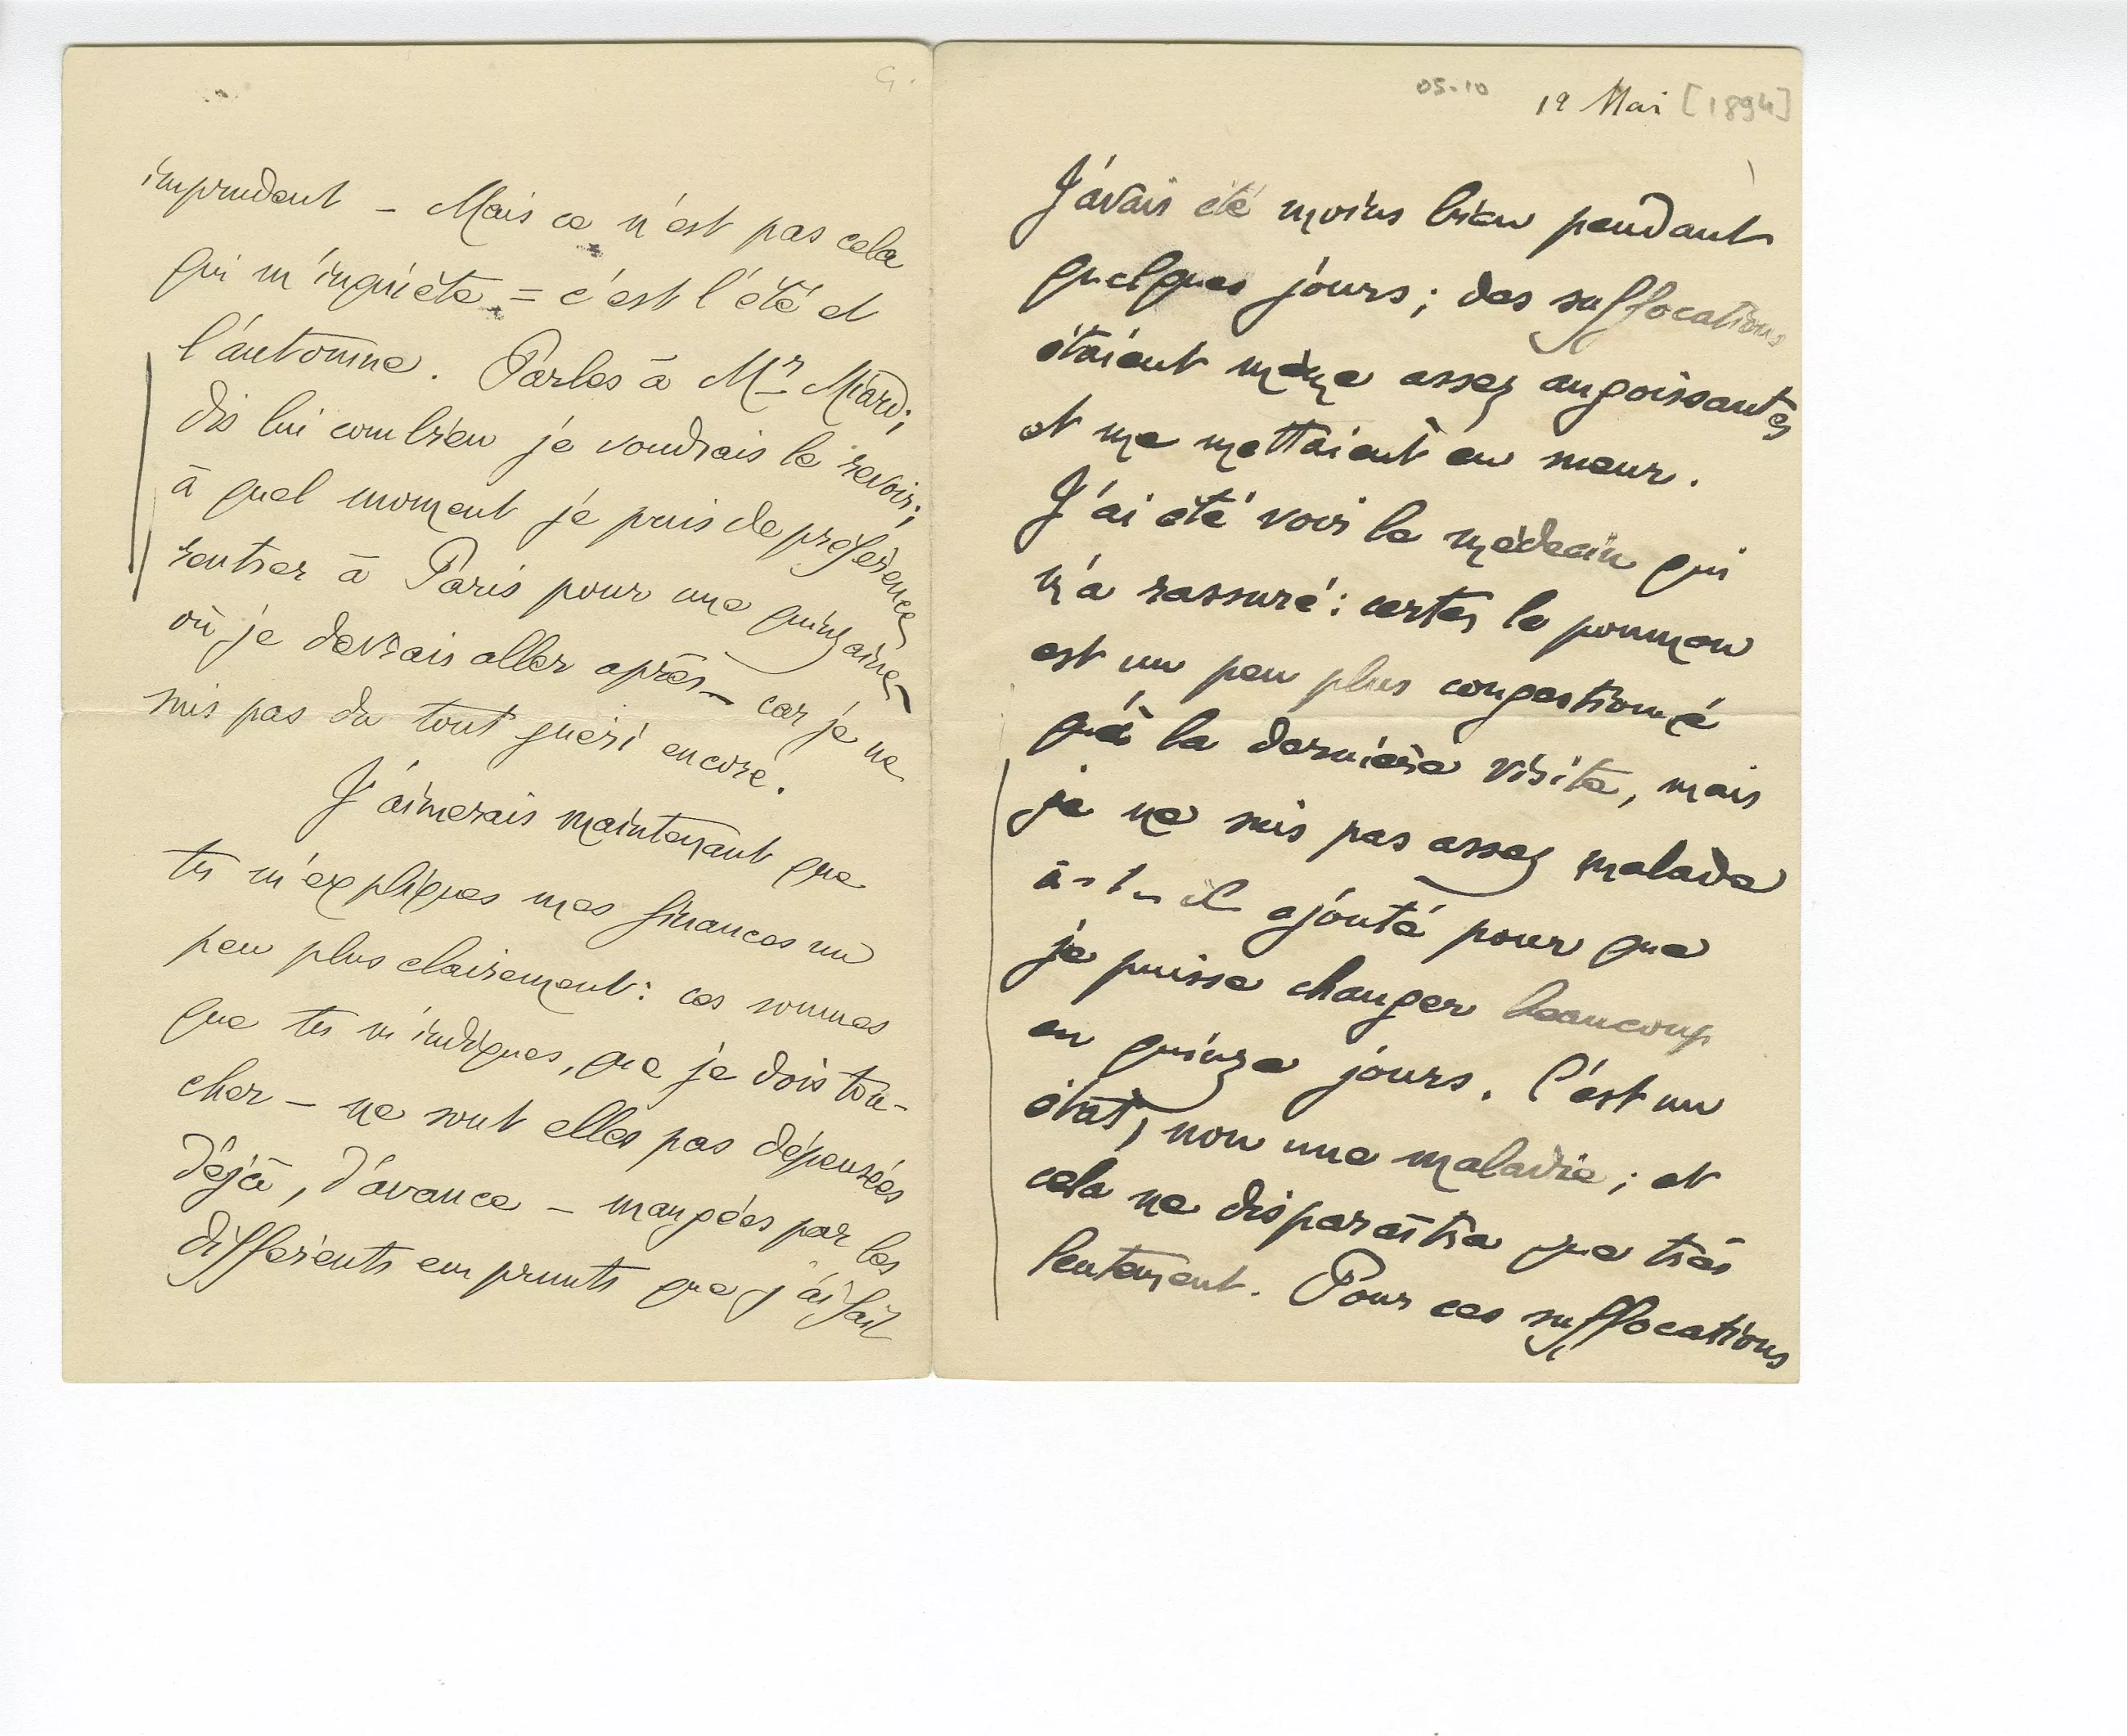 05-10
19 Mai [1894]
J'avais été moins bien pendant
quelques jours ; des suffocations
étaient même assez angoissantes
et me mettaient en sueur.
J'ai été voir le médecin qui
m'a rassuré : certes le poumon
est un peu plus congestionné
qu'à la dernière visite, mais
je ne suis pas assez malade
a-t-il ajouté pour que
je puisse changer beaucoup
en quinze jours. C'est un
état, non une maladie ; et
cela ne disparaîtra que très
lentement. Pour ces suffocations
imprudent – Mais ce n'est pas cela
qui m'inquiète = c'est l'été et
l'automne. Parles à Mr Miard ;
dis lui combien je voudrais le revoir ;
à quel moment je puis de préférence
rentrer à Paris pour une quinzaine,
où je devrais aller après – car je ne
suis pas du tout guéri encore.
J'aimerais maintenant que
tu m'expliques mes finances un
peu plus clairement : ces sommes
que tu m'indiques, que je dois tou-
cher – ne sont elles pas dépensées
déjà, d'avance – mangées par les
différents emprunts que j'ai fait